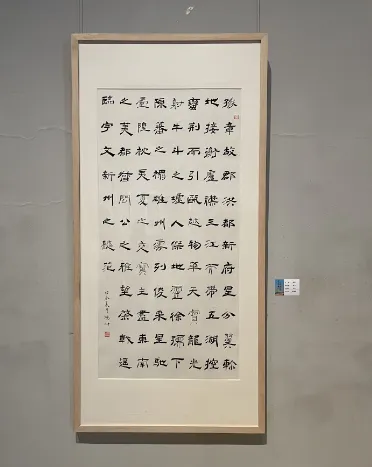 豫章故郡洪都新府星分翼軫
地接衡廬襟三江而帶五湖控
蠻荊而引甌越物華天寶龍光
射牛斗之墟人傑地靈徐孺下
陳蕃之榻雄州霧列俊采星馳
臺隍枕夷夏之交賓主盡東南
之美都督閻公之雅望棨戟遥
臨宇文新州之懿範